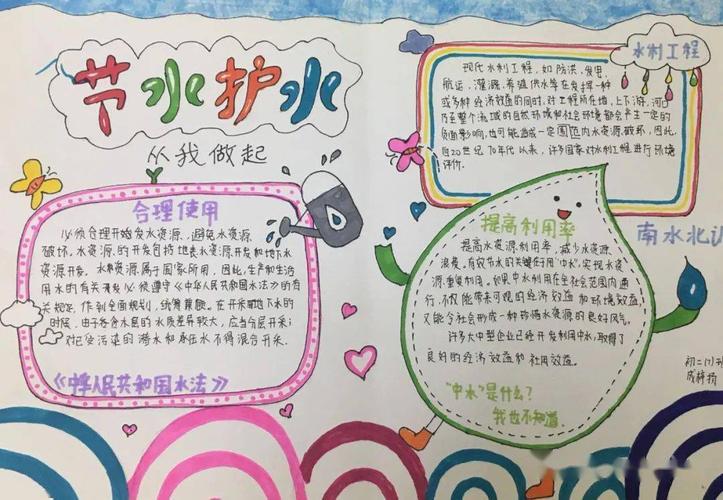 节水护水
从我做起
合理使用
必须合理开始发水资源,避免水资源
破坏。水资源的开发包括地表水资源开发和地下水
资源开发。水资源属于国家所用,因此,生产和生活
用水的有关开发必须遵守《中华人民共和国水法》的有
关规定,作到全面规划,统筹兼顾。在开采地下水的
时候,由于各含水层的水质差异较大,应当分层开采;
对已受污染的潜水和承压水不得混合开采。
《中华人民共和国水法》
水利工程
现代水利工程,如防洪、发电、
航运、灌溉、养殖供水等在发挥一种
或多种经济效益的同时,对工程所在地、上下游、河口
乃至整个流域的自然环境和社会环境都会产生一定的
负面影响,也可能造成一定范围内水资源破坏,因此,
自20世纪70年代以来,许多国家对水利工程进行环境
评价.
提高利用率
提高水资源利用率,减少水资源
浪费。有效节水的关键在于用“中水”,实现水资
源重复利用。如果中水利用在全社会范围内通
行,不仅能带来可观的经济效益和环境效益,
又能令社会形成一种珍惜水资源的良好风气。
许多大中型企业已经开发利用中水,取得了
良好的经济效益和社用效益。
“中水”是什么?
我也不知道.
南水北
初二(7)